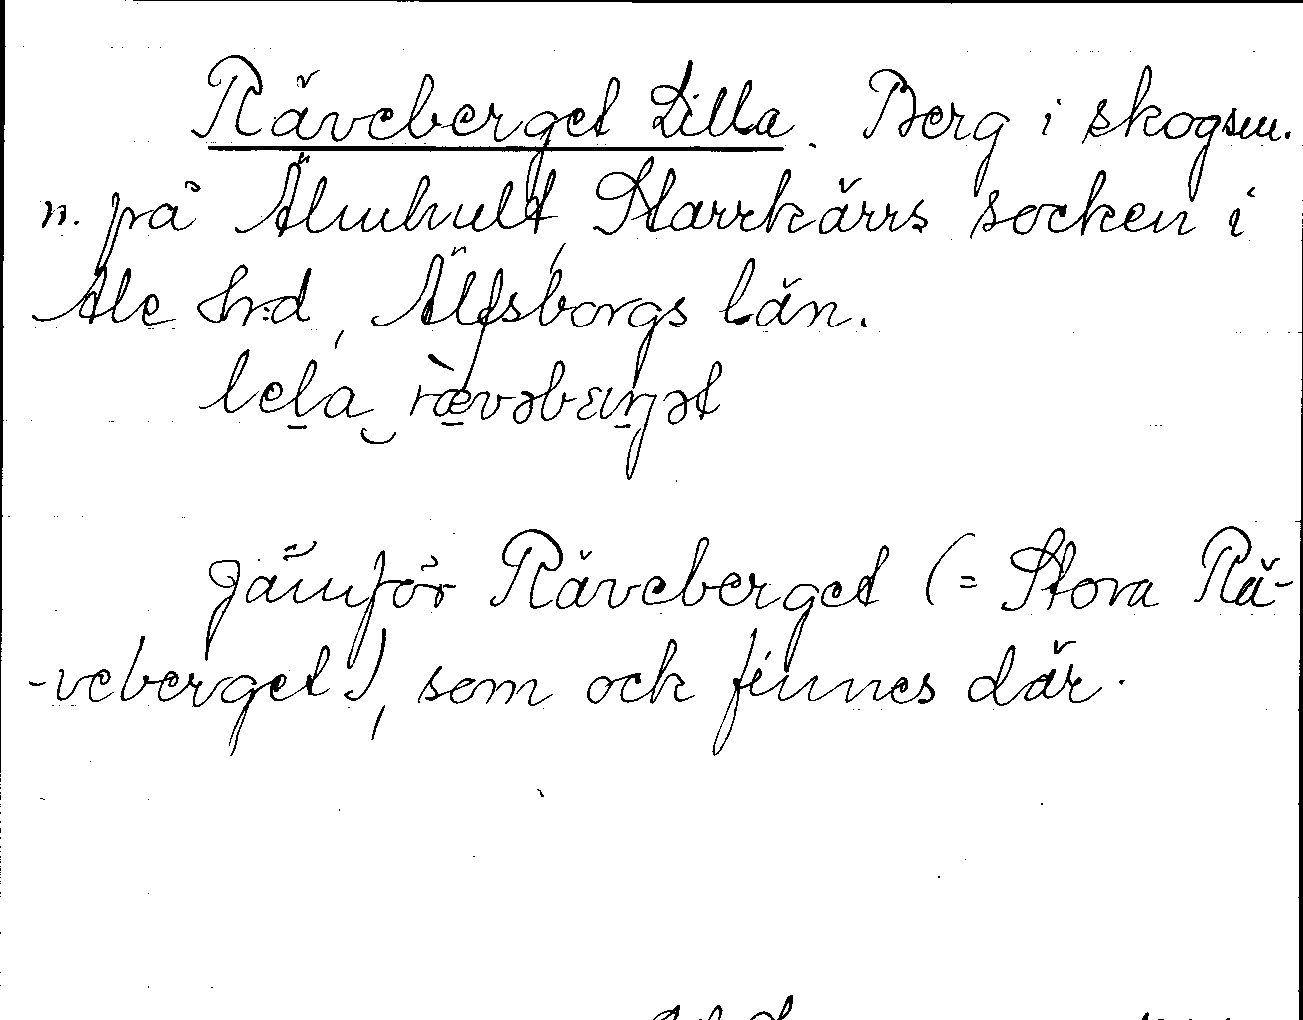 Räveberget Lilla. Berg i skogsm.
n. på Älmhult, Starrkärrs socken i
Ale hrd, Älfsborgs län.
lela rævəbærjət
Jämför Räveberget (= Stora Rä-
-veberget), som ock finnes där.